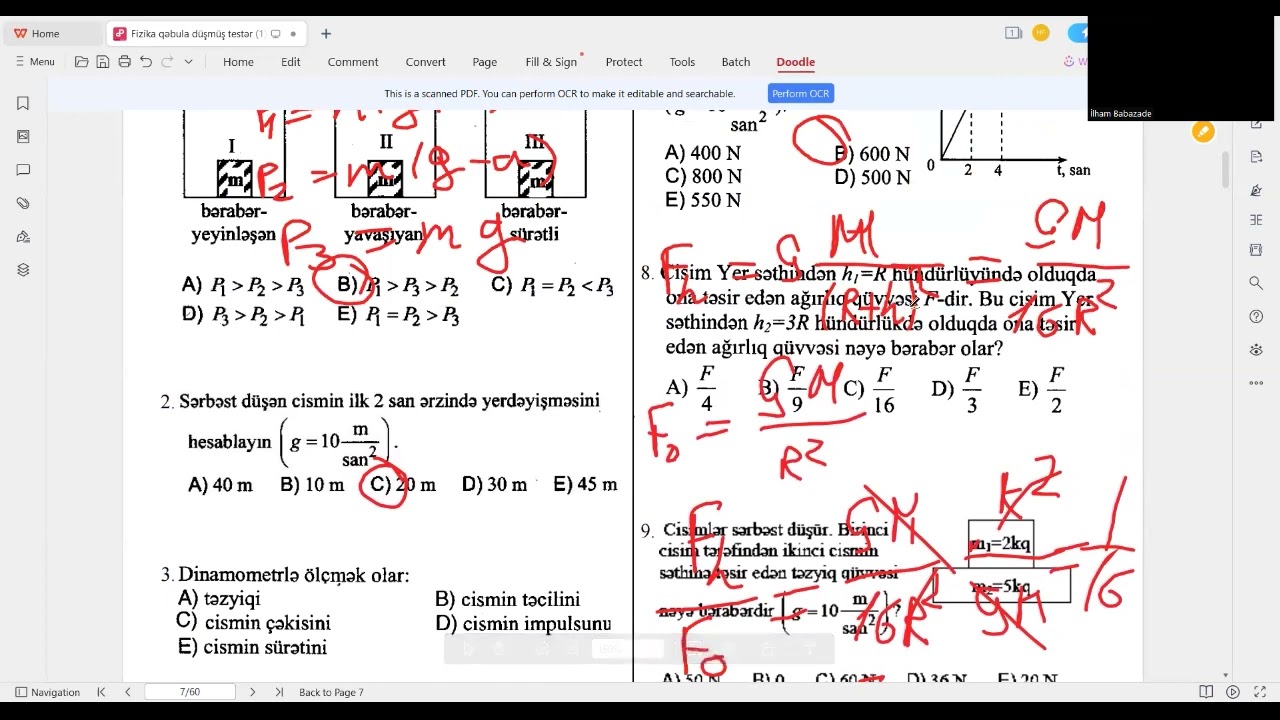 Home
Fizika qəbula düşmüş testər (1
Menu
Home Edit Comment Convert Page Fill & Sign Protect Tools Batch Doodle
This is a scanned PDF. You can perform OCR to make it editable and searchable. Perform OCR
İlham Babazade
I II III
m m m
bərabər-yeyinləşən
bərabər-yavaşıyan
bərabər-sürətli
P₂ = m(g-a)
P₃ = m g
A) P₁ > P₂ > P₃ B) P₁ > P₃ > P₂ C) P₁ = P₂ < P₃
D) P₃ > P₂ > P₁ E) P₁ = P₂ > P₃
2. Sərbəst düşən cismin ilk 2 san ərzində yerdəyişməsini
hesablayın (g = 10 m/san²).
A) 40 m B) 10 m C) 20 m D) 30 m E) 45 m
3. Dinamometrlə ölçmək olar:
A) təzyiqi B) cismin təcilini
C) cismin çəkisini D) cismin impulsunu
E) cismin sürətini
san²
A) 400 N B) 600 N
C) 800 N D) 500 N
E) 550 N
0 2 4 t, san
8. Cisim Yer səthindən h₁=R hündürlüyündə olduqda
ona təsir edən ağırlıq qüvvəsi F-dir. Bu cisim Yer
səthindən h₂=3R hündürlükdə olduqda ona təsir
edən ağırlıq qüvvəsi nəyə bərabər olar?
A) F/4 B) F/9 C) F/16 D) F/3 E) F/2
Fh = GM/(R+h)² = GM/16R²
F₀ = GM/R²
Fh/F₀ = GM/16R² R²/GM = 1/16
9. Cisimlər sərbəst düşür. Birinci
cisim tərəfindən ikinci cismin
səthinə təsir edən təzyiq qüvvəsi
nəyə bərabərdir (g = 10 m/san²)?
m₁=2kq
m₂=5kq
A) 50 N B) 0 C) 60 N D) 36 N E) 20 N
Navigation 7/60 Back to Page 7